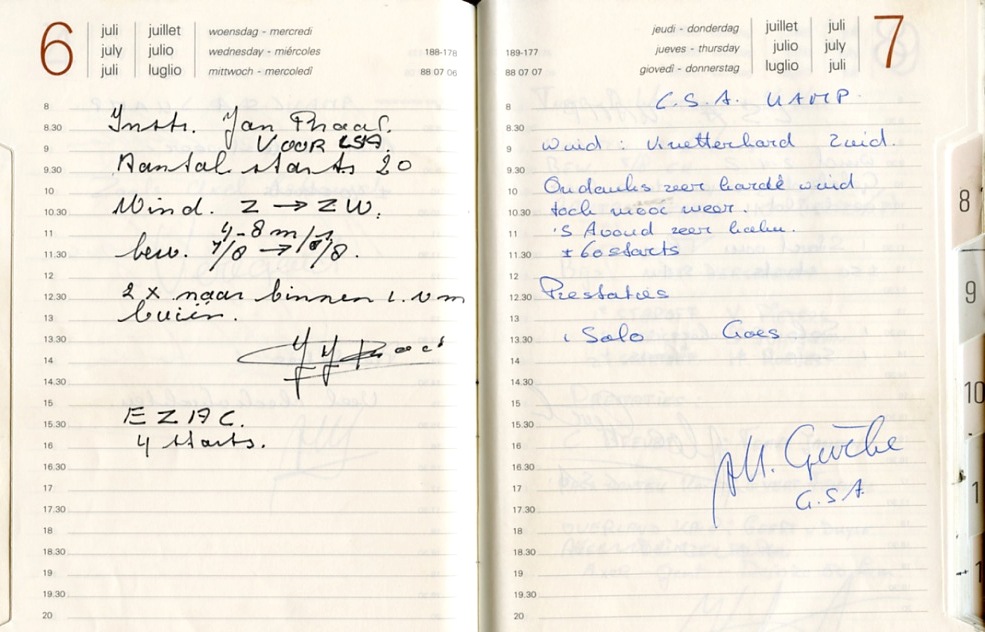 6
juli juillet woensdag - mercredi
july julio wednesday - miércoles 188-178
juli luglio mittwoch - mercoledì 88 07 06
8
8.30 Instr. Jan Praas.
VOOR GSA
9
9.30 Aantal starts 20
10
10.30 Wind. Z → ZW.
11 4-8 m/s
11.30 bew. 4/8 → 8/8.
12
12.30 2 x naar binnen i.v.m
13 buien.
13.30
14
14.30
15
15.30 EZAC.
16 4 starts.
16.30
17
17.30
18
18.30
19
19.30
20
7
jeudi - donderdag juillet juli
189-177 jueves - thursday julio july
88 07 07 giovedì - donnerstag luglio juli
8 G.S.A. KAMP.
8.30
9 Wind: knetterhard Zuid.
9.30
10 Ondanks zeer harde wind
10.30 toch mooi weer.
11 'S Avond zeer kalm.
11.30 ± 60 starts
12
12.30 Prestaties
13
13.30 1 Solo Goes
14
14.30
15
15.30
16
16.30
17 G.S.A.
17.30
18
18.30
19
19.30
20
8
9
10
1
1